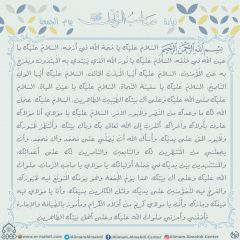 زيارة صاحب الزمان يوم الجمعة
بسم الله الرحمن الرحيم السلام عليك يا حجة الله في أرضه السلام عليك يا
عين الله في خلقه السلام عليك يا نور الله الذي يهتدي به المهتدون ويفرج
به عن المؤمنين السلام عليك أيها المهذب الخائف السلام عليك أيها الولي
الناصح السلام عليك يا سفينة النجاة السلام عليك يا عين الحياة السلام
عليك صلى الله عليك وعلى آل بيتك الطيبين الطاهرين السلام عليك عجل
الله لك ما وعدك من النصر وظهور الأمر السلام عليك يا مولاي أنا مولاك
عارف بأولاك وأخراك أتقرب إلى الله تعالى بك وبآل بيتك وأنتظر ظهورك
وظهور الحق على يديك وأسأل الله أن يصلي على محمد وآل محمد وأن
يجعلني من المنتظرين لك والتابعين والناصرين لك على أعدائك
والمستشهدين بين يديك في جملة أوليائك يا مولاي يا صاحب الزمان صلوات
الله عليك وعلى آل بيتك هذا يوم الجمعة وهو يومك المتوقع فيه ظهورك
والفرج فيه للمؤمنين على يديك وقتل الكافرين بسيفك وأنا يا مولاي فيه
ضيفك وجارك وأنت يا مولاي كريم من أولاد الكرام ومأمور بالضيافة والإجارة
فأضفني وأجرني صلوات الله عليك وعلى أهل بيتك الطاهرين